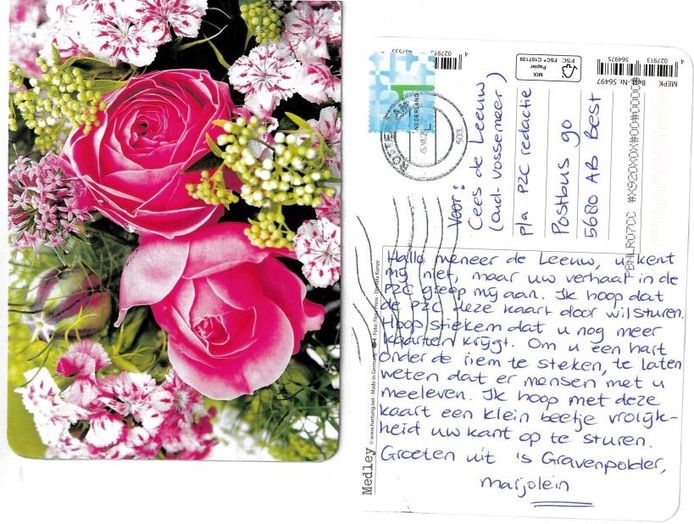 Hallo meneer de Leeuw, u kent
mij niet, maar uw verhaal in de
PZC greep mij aan. Ik hoop dat
de PZC deze kaart door wil sturen.
Hoop stiekem dat u nog meer
kaarten krijgt. Om u een hart
onder de riem te steken, te laten
weten dat er mensen met u
meeleven. Ik hoop met deze
kaart een klein beetje vrolijk-
heid uw kant op te sturen.
Groeten uit 's Gravenpolder,
Marjolein
Voor:
Cees de Leeuw
(oud-Vossemeer)
p/a PZC redactie
Postbus 90
5680 AB Best
NEDERLAND
1
Medley
© www.hartung.net · Made in Germany
MIX
Papier
FSC® C107139
FSC
4 027913 564975
Best.-Nr. 56497
MEPK